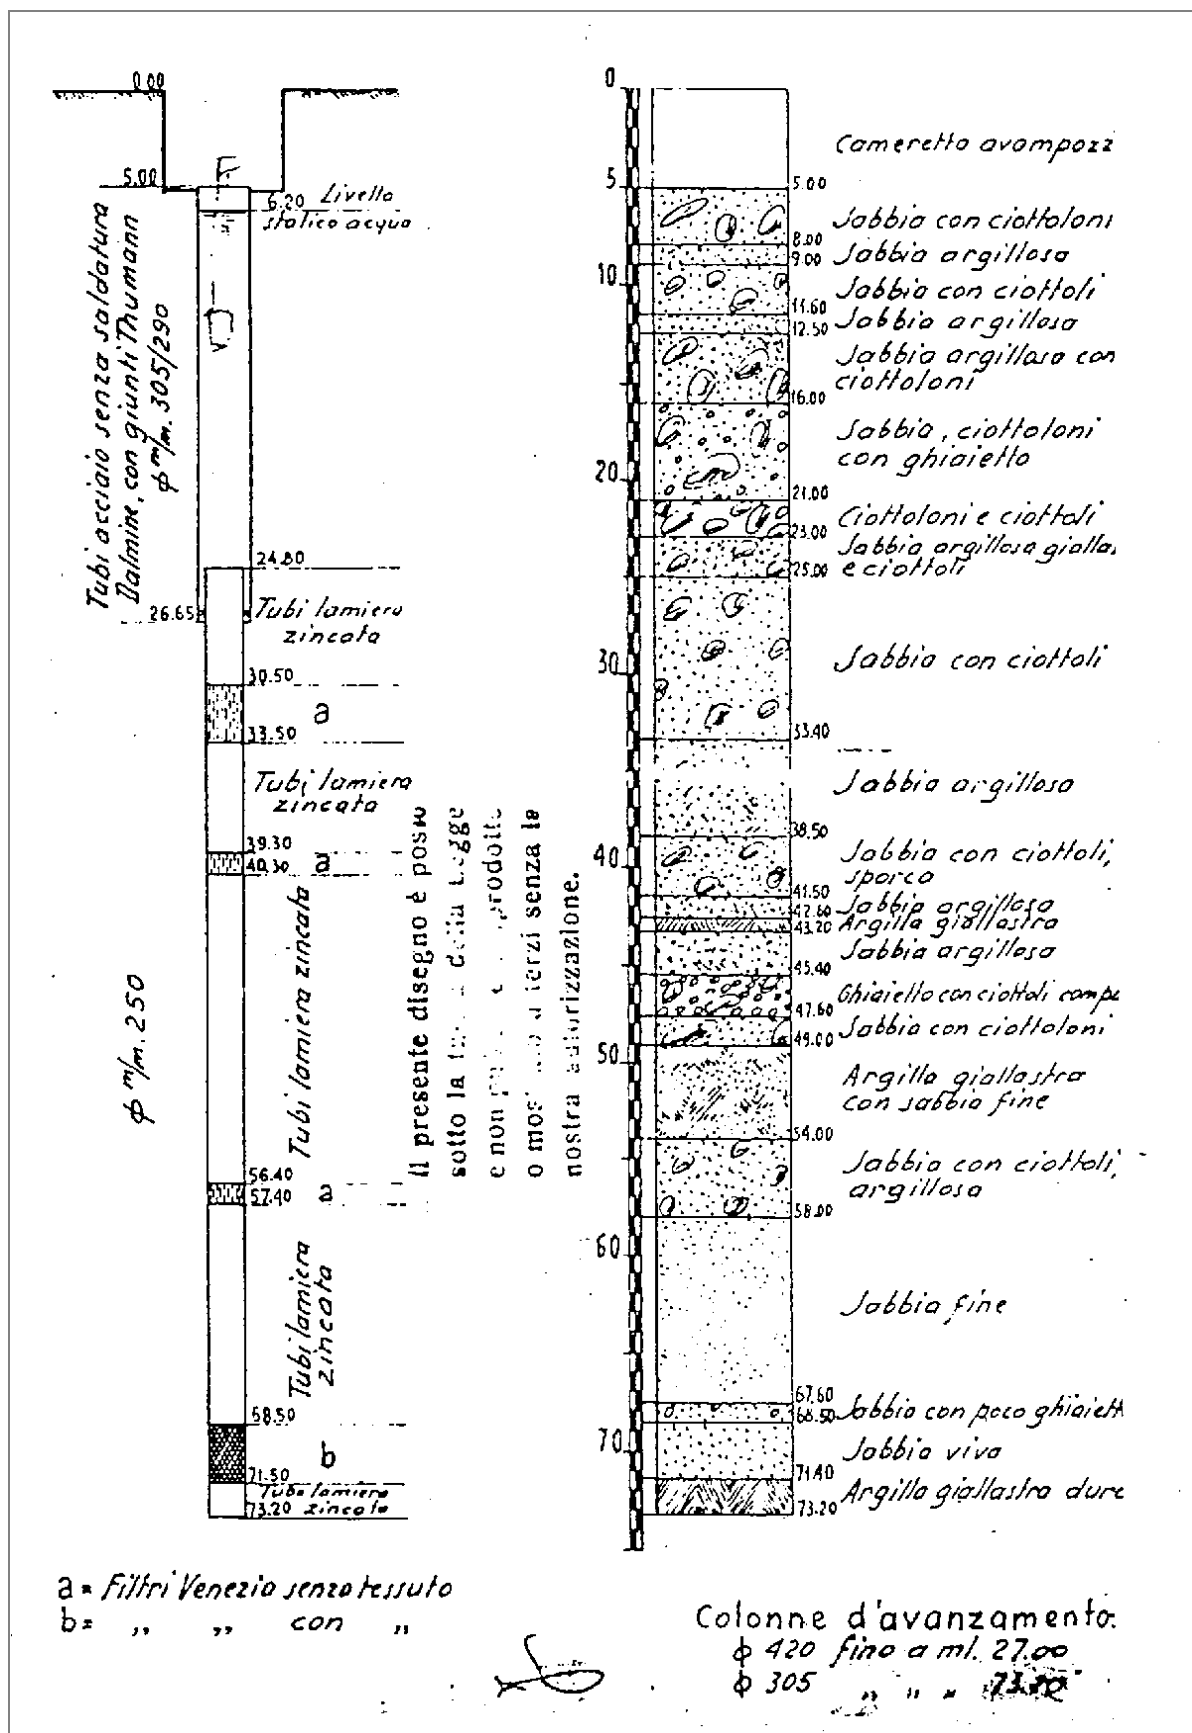 0.00
5.00
6.20 Livello
statico acqua
Tubi acciaio senza saldatura
Dalmine, con giunti Thumann
ϕ m/m. 305/290
24.80
26.65
Tubi lamiera
zincata
30.50
a
33.50
Tubi lamiera
zincata
39.30
40.30
a
Tubi lamiera zincata
ϕ m/m. 250
56.40
57.40
a
Tubi lamiera
zincata
68.50
b
71.50
Tubi lamiera
73.20 zincata
Il presente disegno è posto
sotto la della Legge
e non prodotto
o mos a terzi senza la
nostra autorizzazione.
0
5
10
20
30
40
50
60
70
Cameretta avampozz
5.00
Sabbia con ciottoloni
8.00
9.00 Sabbia argillosa
Sabbia con ciottoli
11.60
12.50 Sabbia argillosa
Sabbia argillosa con
ciottoloni
16.00
Sabbia, ciottoloni
con ghiaietto
21.00
Ciottoloni e ciottoli
23.00
Sabbia argillosa gialla
25.00 e ciottoli
Sabbia con ciottoli
33.40
Sabbia argillosa
38.50
Sabbia con ciottoli,
sporca
41.50
42.60 Sabbia argillosa
43.20 Argilla giallastra
Sabbia argillosa
45.40
Ghiaiello con ciottoli compa
47.60
Sabbia con ciottoloni
49.00
Argilla giallastra
con sabbia fine
54.00
Sabbia con ciottoli,
argillosa
58.00
Sabbia fine
67.60
68.50 Sabbia con poco ghiaiett
Sabbia viva
71.40
Argilla giallastra dura
73.20
a = Filtri Venezia senza tessuto
b = ,, ,, con ,,
Colonne d'avanzamento:
ϕ 420 fino a ml. 27.00
ϕ 305 ,, ,, " 73.20